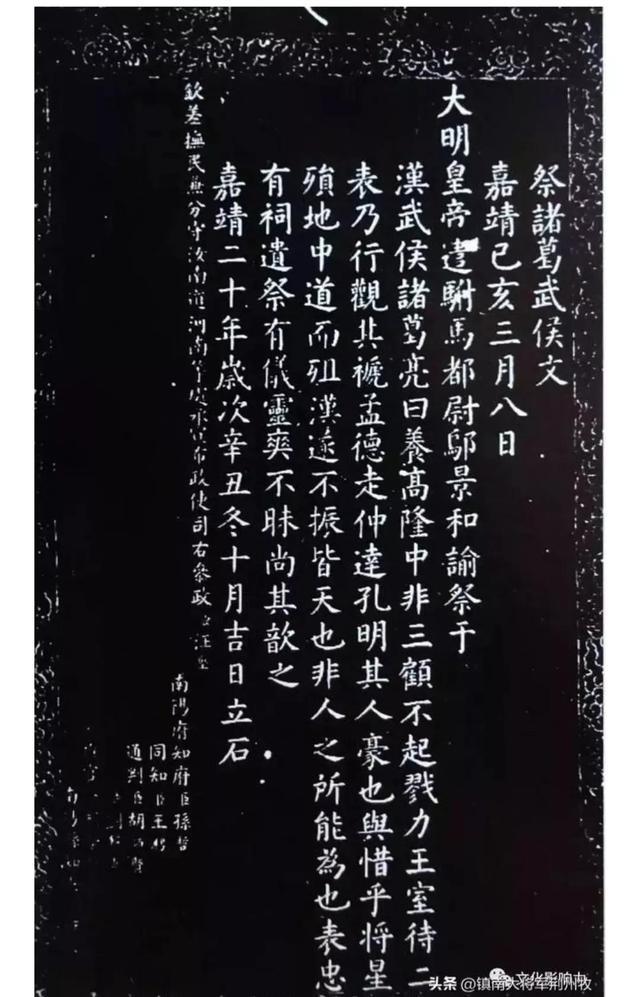 祭諸葛武侯文
嘉靖己亥三月八日
大明皇帝遣駙馬都尉鄔景和諭祭于
漢武侯諸葛亮曰養高隆中非三顧不起戮力王室待二
表乃行觀其褫孟德走仲達孔明其人豪也與惜乎將星
殞地中道而殂漢遂不振皆天也非人之所能為也表忠
有祠遣祭有儀靈爽不昧尚其歆之
嘉靖二十年歲次辛丑冬十月吉日立石
欽差撫民兼分守汝南道河南等處承宣布政使司右參政臣汪
南陽府知府臣孫哲
同知臣王
通判臣胡
文化影响力
头条 @镇南大将军荆州牧